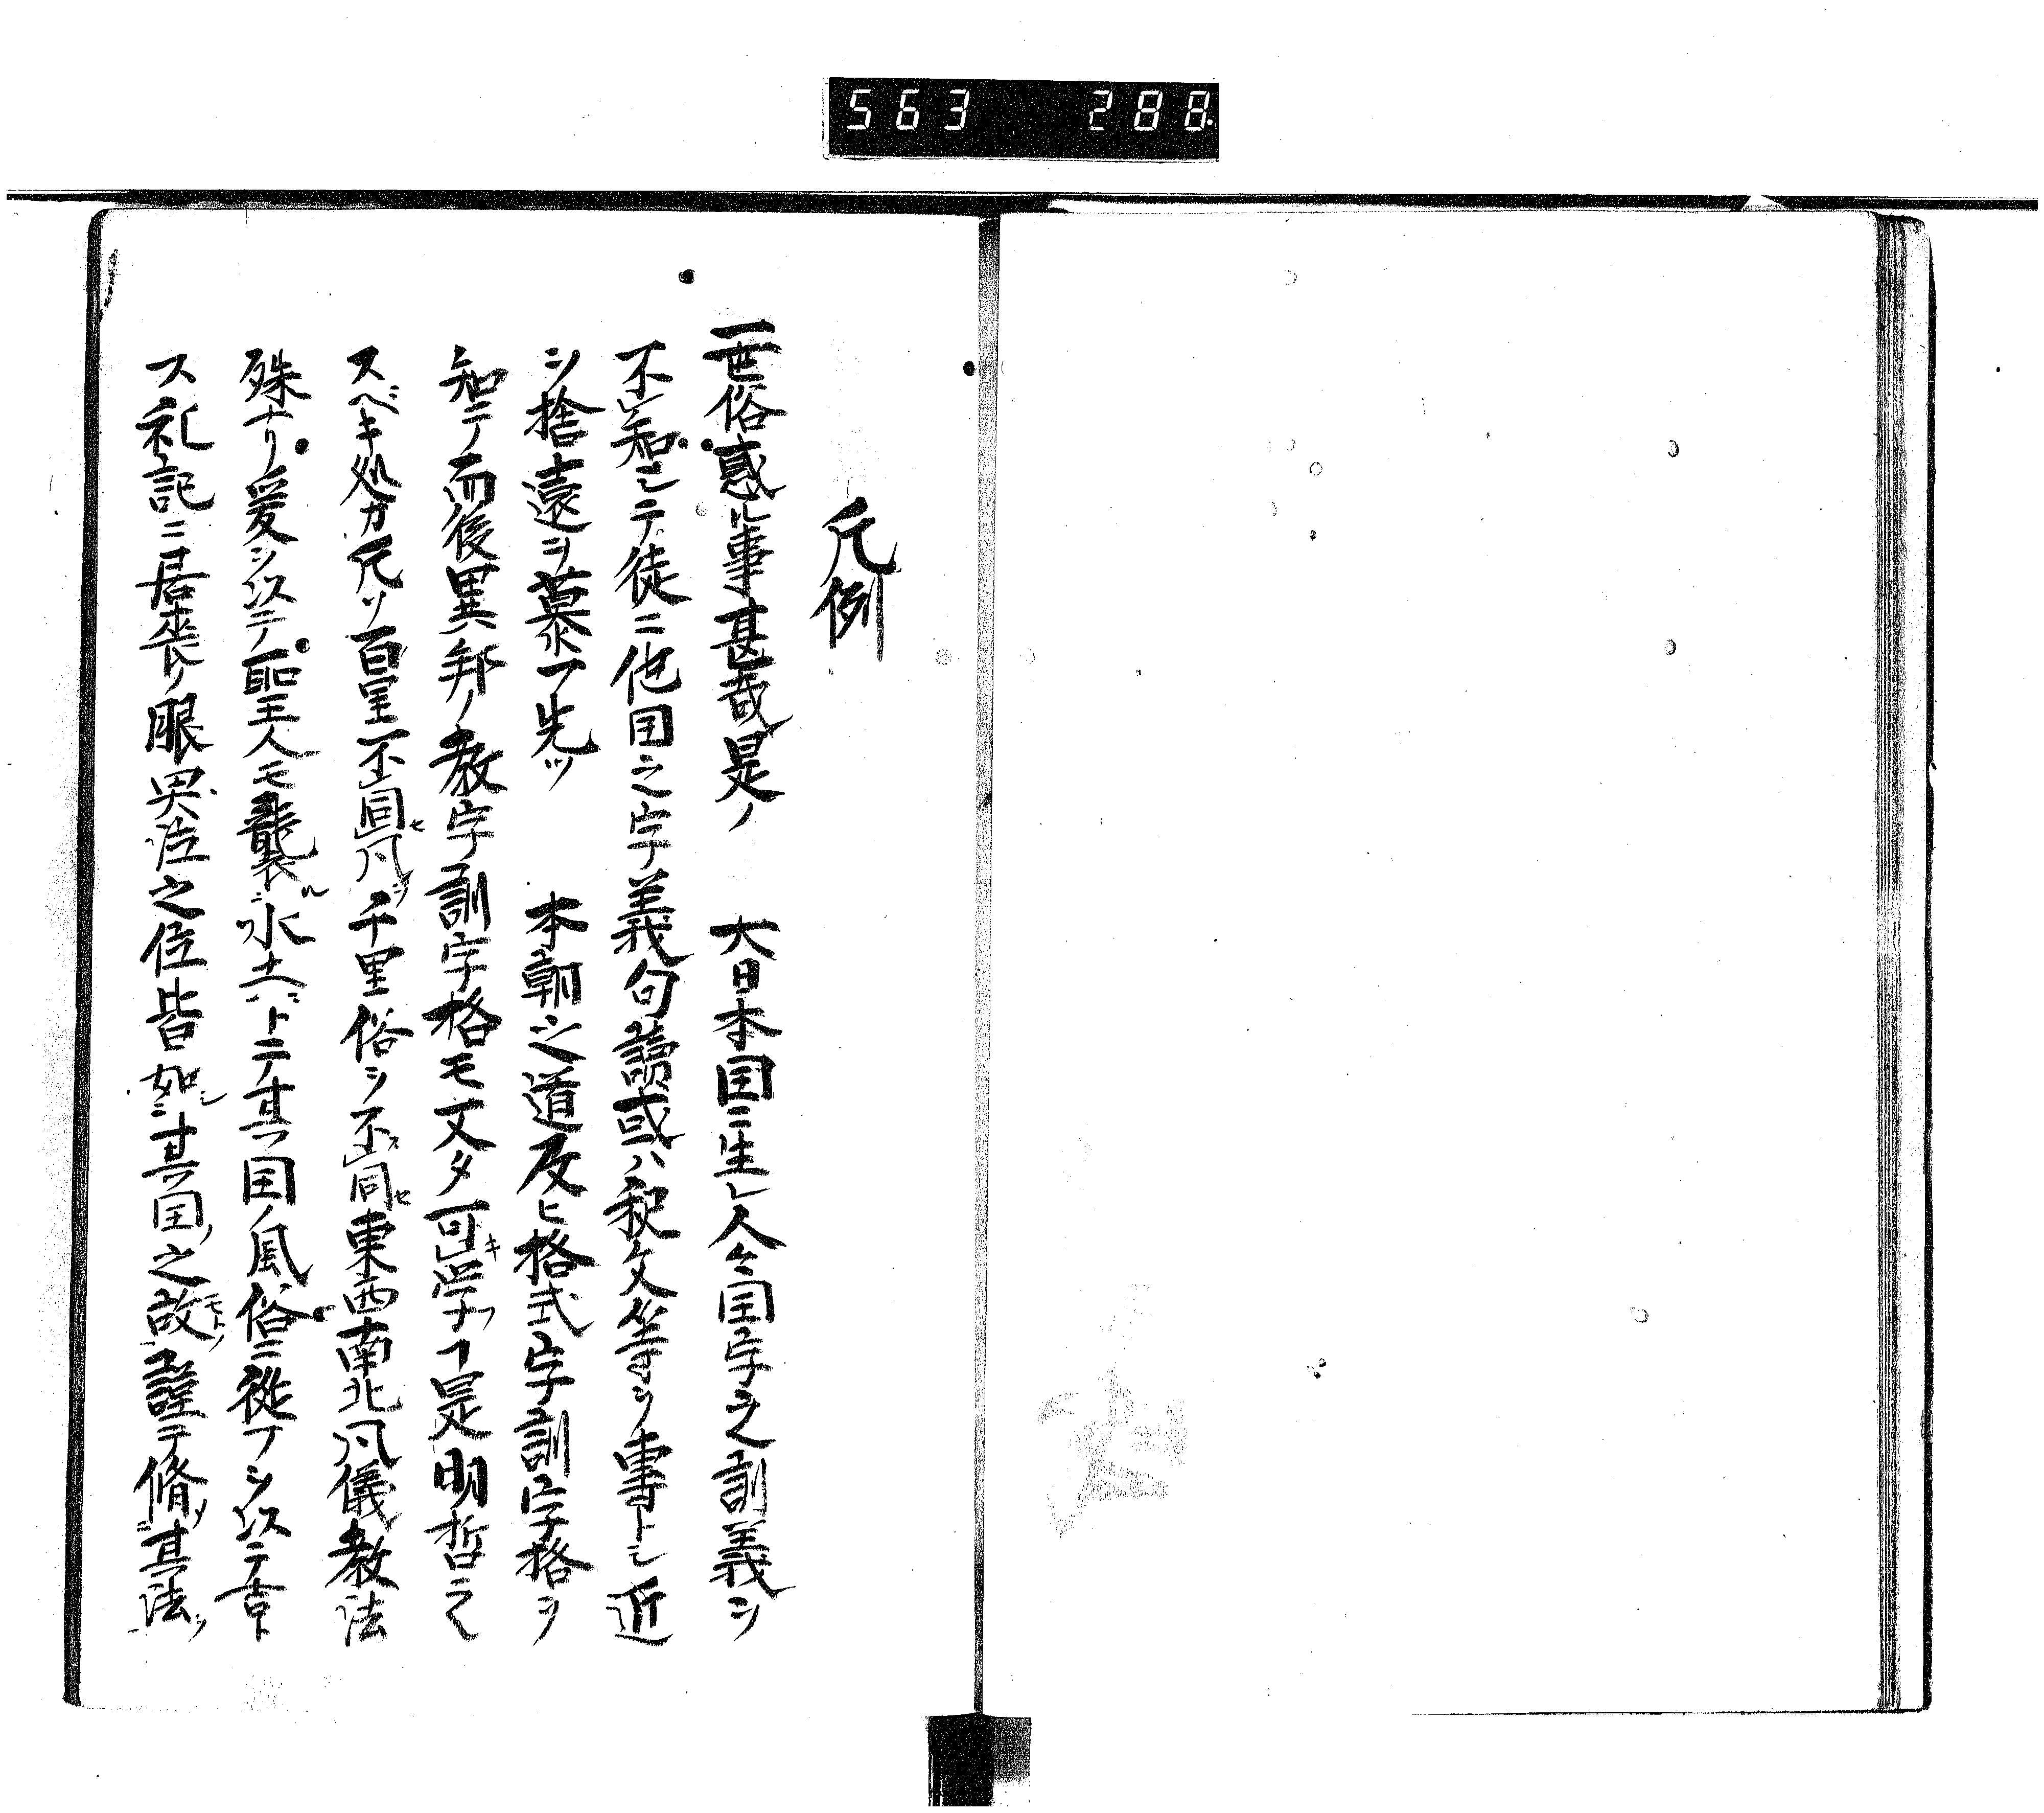 563 288
凡例
一世俗惑ル事甚哉是ノ 大日本国ニ生レ人々国字之訓義ヲ
不レ知シテ徒ニ他国之字義句讀或ハ釈文等ヲ事トシ近
ヲ捨遠ヲ慕フ先ツ 本朝之道及ヒ格式字訓字格ヲ
知テ而後異邦ノ教字訓字格モ又タ可キレ学フヿ是明哲之
スベキ処カ凡ソ百里不レ同セ凡ヲ千里俗ヲ不スレ同セ東西南北凡儀教法
殊ナリ爰ヲ以テ聖人モ襲ル二水土ニトテ其ノ国ノ風俗ニ従フヲ以テ吉ト
ス礼記ニ居喪ノ服哭泣之位皆如シ二其ノ国ノ之故モトノ謹テ脩ソ二其ノ法ヲ